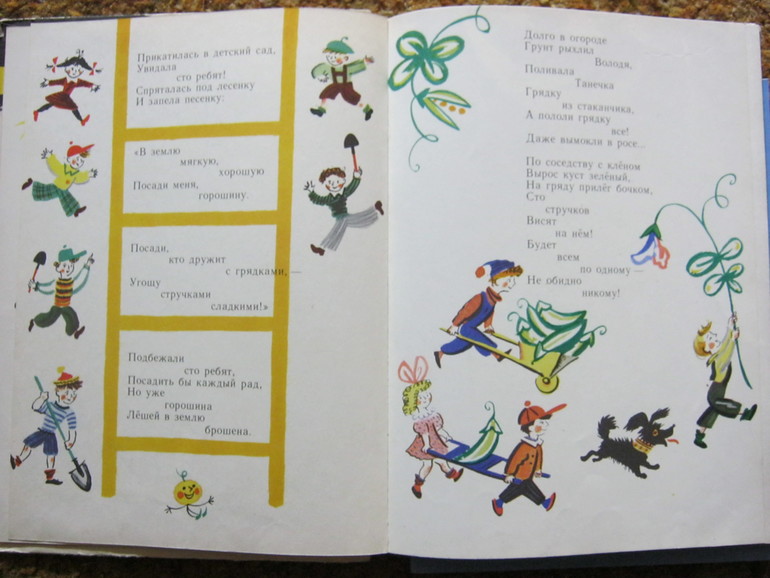 Прикатилась в детский сад,
Увидала
сто ребят!
Спряталась под лесенку
И запела песенку:
«В землю
мягкую,
хорошую
Посади меня,
горошину.
Посади,
кто дружит
с грядками, —
Угощу
стручками
сладкими!»
Подбежали
сто ребят,
Посадить бы каждый рад,
Но уже
горошина
Лёшей в землю
брошена.
Долго в огороде
Грунт рыхлил
Володя,
Поливала
Танечка
Грядку
из стаканчика,
А пололи грядку
все!
Даже вымокли в росе...
По соседству с клёном
Вырос куст зелёный,
На гряду прилёг бочком,
Сто
стручков
Висят
на нём!
Будет
всем
по одному —
Не обидно
никому!